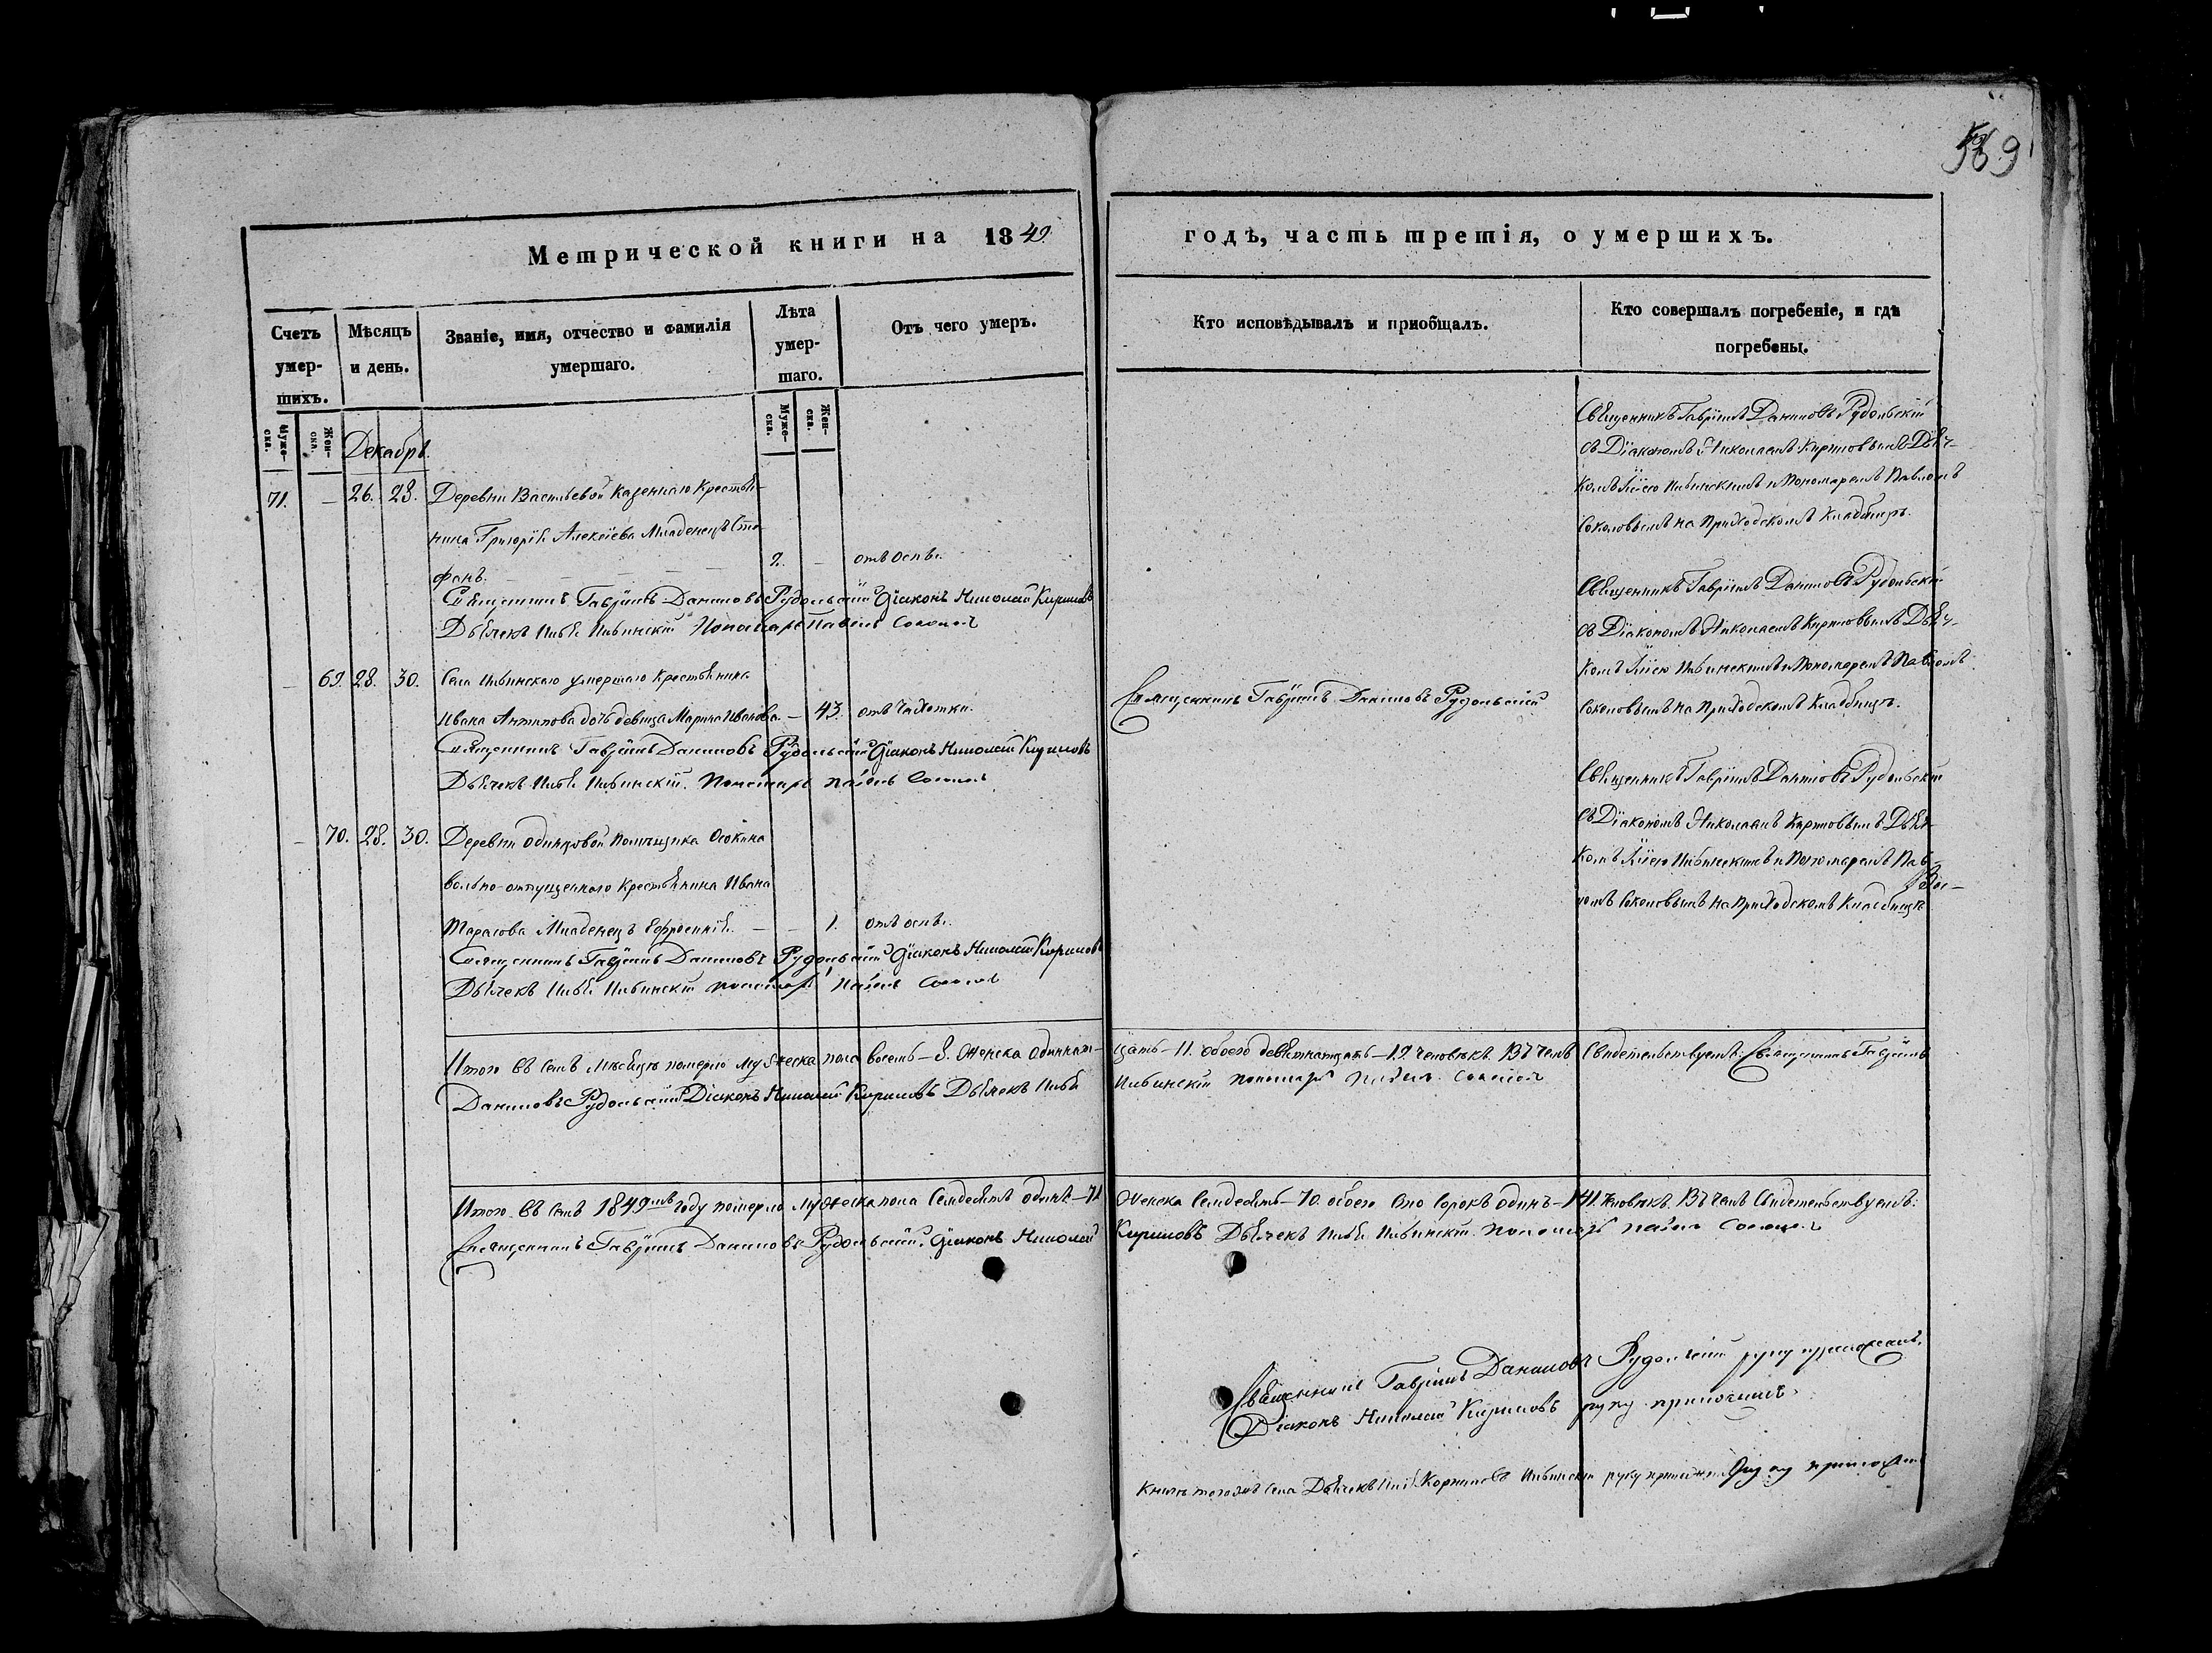 569
Метрической книги на 1849.
годъ, часть третія, о умершихъ.
Счетъ умер-шихъ.
Мѣсяцъ и день.
Званіе, имя, отчество и фамилія умершаго.
Лѣта умер-шаго.
Отъ чего умеръ.
Кто исповѣдывалъ и пріобщалъ.
Кто совершалъ погребеніе, и гдѣ погребены.
Муже-ска.
Жен-ска.
Муже-ска.
Жен-ска.
Декабрь.
71. — 26. 28. Деревни Васильевой Казеннаго Крестья-
нина Григорія Алексіева Младенецъ Сте-
фанъ. 2. — отъ оспы.
Священникъ Гавріилъ Даниловъ Рудольскій Діаконъ Николай Кириловъ
Дьячекъ Илья Ильинскій Пономарь Павелъ Соколовъ
Священникъ Гавріилъ Даниловъ Рудольскій
съ Діакономъ Николаемъ Кириловымъ Дьяч-
комъ Ильею Ильинскимъ и Пономаремъ Павломъ
Соколовымъ на Приходскомъ Кладбищѣ.
— 69. 28. 30. Села Ильинскаго умершаго Крестьянина
Ивана Антипова дочь девица Марина Иванова. — 43. отъ Чахотки.
Священникъ Гавріилъ Даниловъ Рудольскій Діаконъ Николай Кириловъ
Дьячекъ Илья Ильинскій. Пономарь Павелъ Соколовъ
Священникъ Гавріилъ Даниловъ Рудольскій
Священникъ Гавріилъ Даниловъ Рудольскій
съ Діакономъ Николаемъ Кириловымъ Дьяч-
комъ Ильею Ильинскимъ и Пономаремъ Павломъ
Соколовымъ на Приходскомъ Кладбищѣ.
— 70. 28. 30. Деревни Одинцовой Помѣщика Осокина
вольно-отпущеннаго Крестьянина Ивана
Тарасова Младенецъ Ефросинія. — — 1. отъ оспы.
Священникъ Гавріилъ Даниловъ Рудольскій Діаконъ Николай Кириловъ
Дьячекъ Илья Ильинскій пономарь Павелъ Соколовъ
Священникъ Гавріилъ Даниловъ Рудольскій
съ Діакономъ Николаемъ Кириловымъ Дьяч-
комъ Ильею Ильинскимъ и Пономаремъ Пав-
ломъ Соколовымъ на Приходскомъ Кладбищѣ
Итого въ семъ Мѣсяцѣ померло мужеска пола восемь — 8. Женска одиннат-
цать — 11. обоего девятнатцать — 19. человѣкъ. Въ чемъ Свидетельствуемъ: Священникъ Гавріилъ
Даниловъ Рудольскій Діаконъ Николай Кириловъ Дьячекъ Илья
Ильинскій пономарь Павелъ Соколовъ
Итого въ семъ 1849мъ году померло мужеска пола Семдесятъ одинъ — 71
Женска Семдесятъ — 70. обоего Сто Сорокъ одинъ — 141. человѣкъ. Въ чемъ Свидетельствуемъ:
Священникъ Гавріилъ Даниловъ Рудольскій. Діаконъ Николай
Кириловъ Дьячекъ Илья Ильинскій. пономарь Павелъ Соколовъ
Священникъ Гавріилъ Даниловъ Рудольскій руку приложилъ.
Діаконъ Николай Кириловъ руку приложилъ.
Дьячекъ Илья Ильинскій руку приложилъ